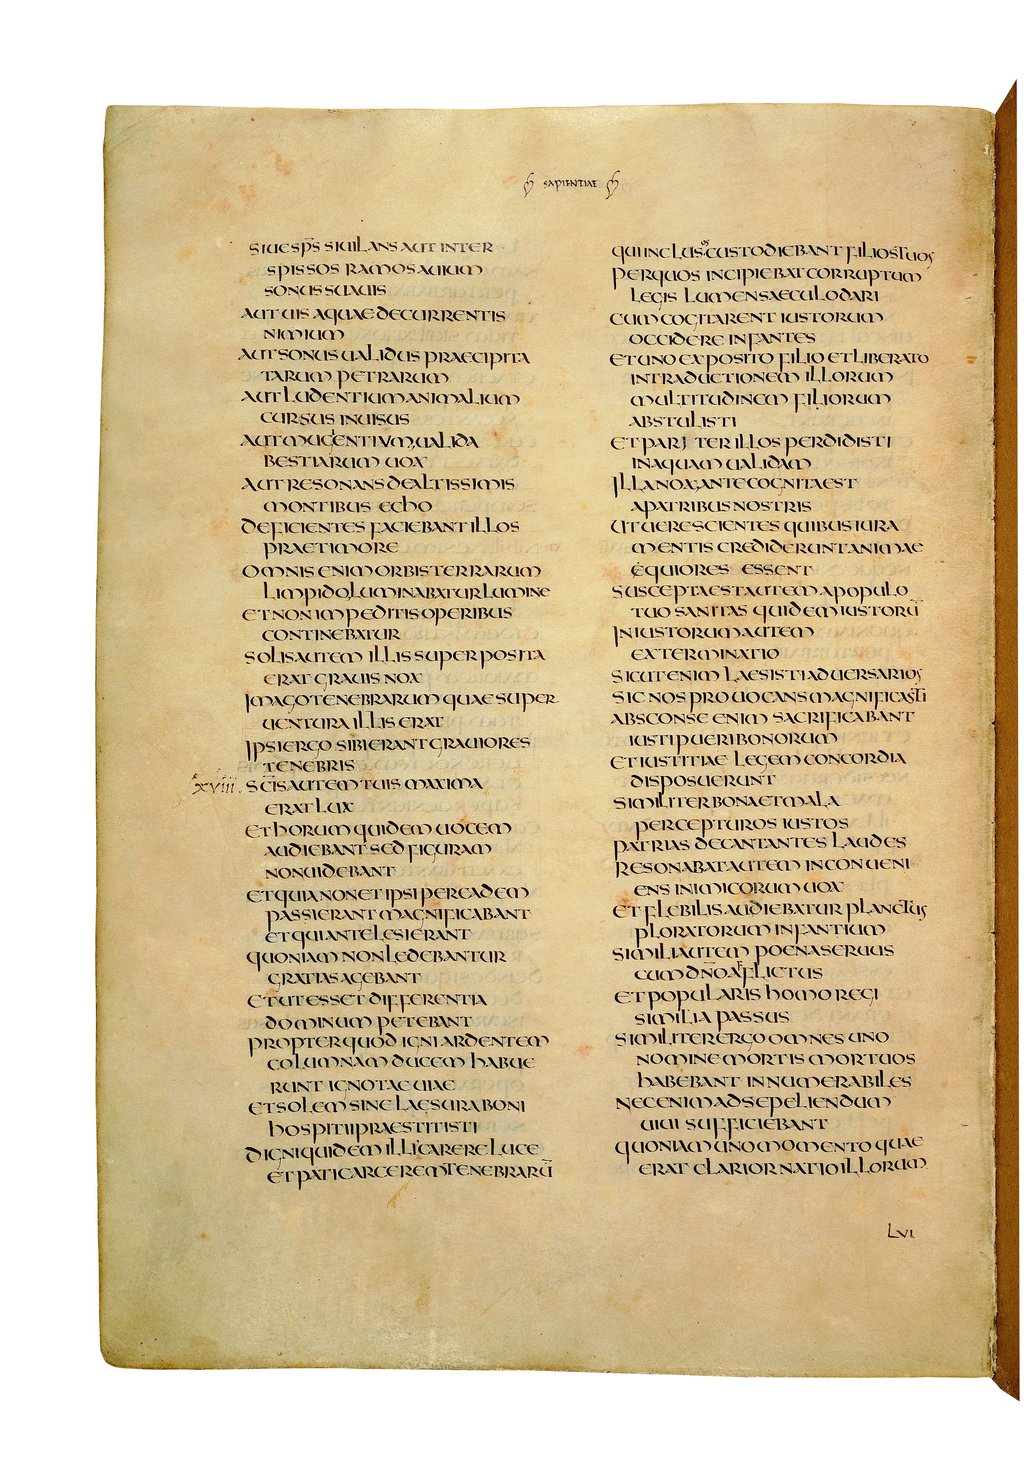 SAPIENTIAE
SIUE SP̄S SIUILANS AUT INTER
SPISSOS RAMOS AUIUM
SONUS SUAUIS
AUT UIS AQUAE DECURRENTIS
NIMIUM
AUT SONUS UALIDUS PRAECIPITA
TARUM PETRARUM
AUT LUDENTIUM ANIMALIUM
CURSUS INUISUS
AUT MUGENTIUM UALIDA
BESTIARUM UOX
AUT RESONANS DE ALTISSIMIS
MONTIBUS ECHO
DEFICIENTES FACIEBANT ILLOS
PRAE TIMORE
OMNIS ENIM ORBIS TERRARUM
LIMPIDO LUMINABATUR LUMINE
ET NON IMPEDITIS OPERIBUS
CONTINEBATUR
SOLIS AUTEM ILLIS SUPERPOSITA
ERAT GRAUIS NOX
IMAGO TENEBRARUM QUAE SUPER
UENTURA ILLIS ERAT
IPSI ERGO SIBI ERANT GRAUIORES
TENEBRIS
xviii. SC̄IS AUTEM TUIS MAXIMA
ERAT LUX
ET HORUM QUIDEM UOCEM
AUDIEBANT SED FIGURAM
NON UIDEBANT
ET QUIA NON ET IPSI PER EADEM
PASSI ERANT MAGNIFICABANT
ET QUI ANTE LESI ERANT
QUONIAM NON LEDEBANTUR
GRATIAS AGEBANT
ET UT ESSET DIFFERENTIA
DOMINUM PETEBANT
PROPTER QUOD IGNI ARDENTEM
COLUMNAM DUCEM HABUE
RUNT IGNOTAE UIAE
ET SOLEM SINE LAESURA BONI
HOSPITII PRAESTITISTI
DIGNI QUIDEM ILLI CARERE LUCE
ET PATI CARCEREM TENEBRARŪ
QUI INCLUSOS CUSTODIEBANT FILIOS TUOS
PER QUOS INCIPIEBAT CORRUPTUM
LEGIS LUMEN SAECULO DARI
CUM COGITARENT IUSTORUM
OCCIDERE INFANTES
ET UNO EXPOSITO FILIO ET LIBERATO
IN TRADUCTIONEM ILLORUM
MULTITUDINEM FILIORUM
ABSTULISTI
ET PARITER ILLOS PERDIDISTI
IN AQUAM UALIDAM
ILLA NOX ANTE COGNITA EST
A PATRIBUS NOSTRIS
UT UERE SCIENTES QUIBUS IURA
MENTIS CREDIDERUNT ANIMAE
EQUIORES ESSENT
SUSCEPTA EST AUTEM A POPULO
TUO SANITAS QUIDEM IUSTORŪ
INIUSTORUM AUTEM
EXTERMINATIO
SICUT ENIM LAESISTI ADUERSARIOS
SIC NOS PROUOCANS MAGNIFICASTI
ABSCONSE ENIM SACRIFICABANT
IUSTI PUERI BONORUM
ET IUSTITIAE LEGEM CONCORDIA
DISPOSUERUNT
SIMILITER BONA ET MALA
PERCEPTUROS IUSTOS
PATRIAS DECANTANTES LAUDES
RESONABAT AUTEM INCONUENI
ENS INIMICORUM UOX
ET FLEBILIS AUDIEBATUR PLANCTUS
PLORATORUM INFANTIUM
SIMILI AUTEM POENA SERUUS
CUM DN̄O AFFLICTUS
ET POPULARIS HOMO REGI
SIMILIA PASSUS
SIMILITER ERGO OMNES UNO
NOMINE MORTIS MORTUOS
HABEBANT INNUMERABILES
NEC ENIM AD SEPELIENDUM
UIUI SUFFICIEBANT
QUONIAM UNO MOMENTO QUAE
ERAT CLARIOR NATIO ILLORUM
LVI